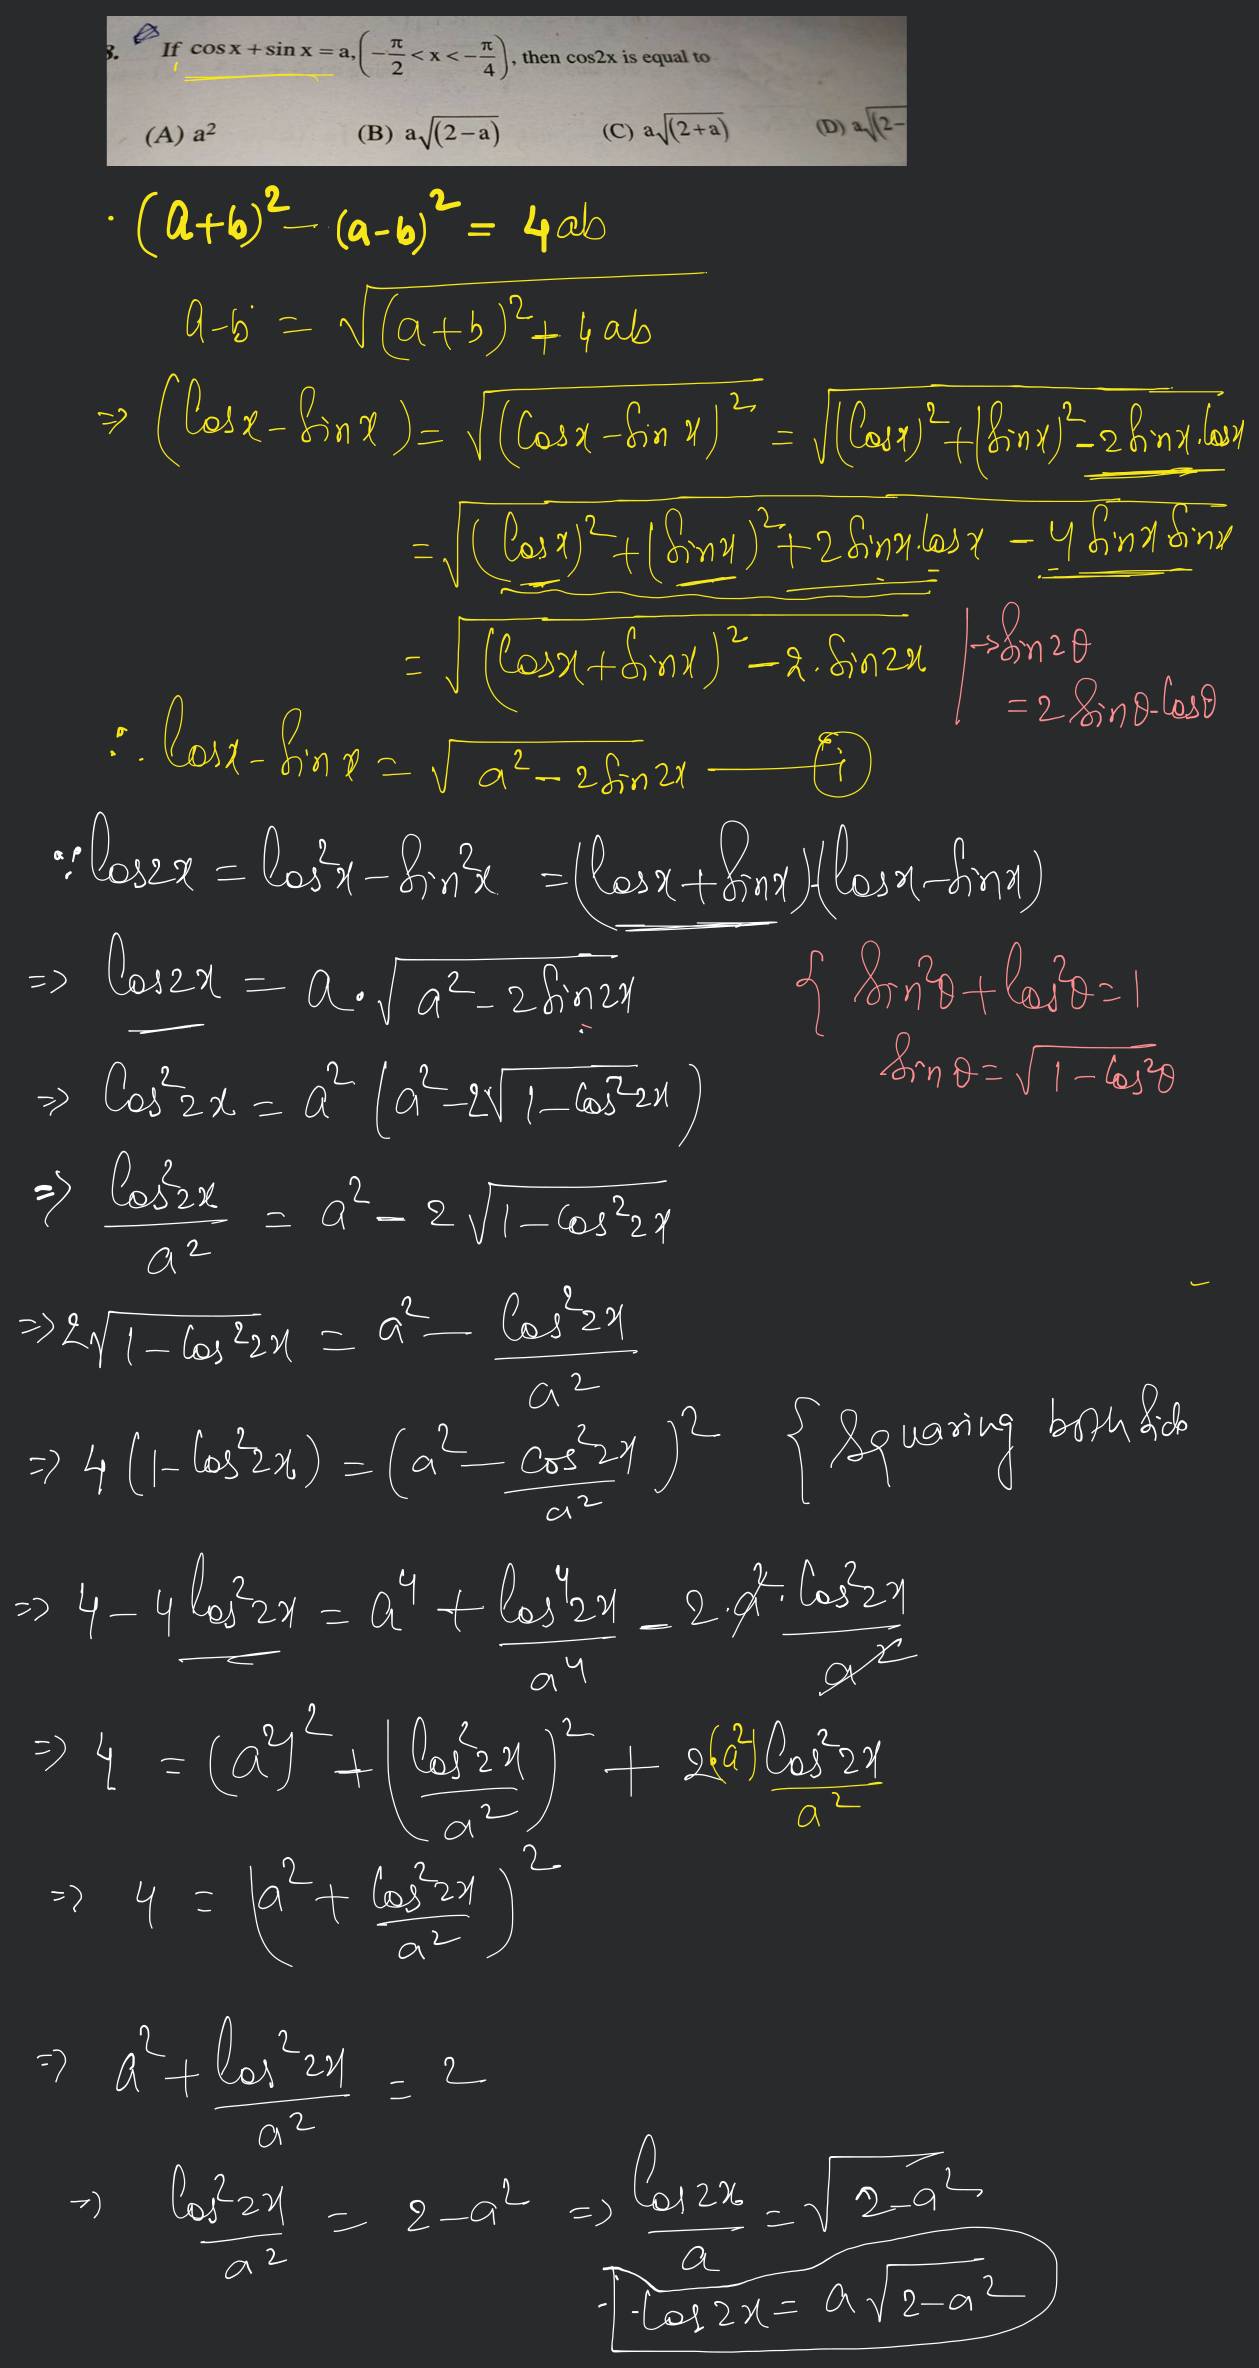 3. If cosx + sin x = a, (−π/2 < x < −π/4), then cos2x is equal to
(A) a² (B) a√(2−a) (C) a√(2+a) (D) a√(2−
· (a+b)² − (a−b)² = 4ab
a−b = √((a+b)² + 4ab)
⇒ (Cosx − Sinx) = √((Cosx − Sinx)²) = √((Cosx)² + (Sinx)² − 2Sinx.Cosx
= √((Cosx)² + (Sinx)² + 2Sinx.Cosx − 4SinxSinx
= √((Cosx + Sinx)² − 2.Sin2x
→ Sin2θ
= 2Sinθ.Cosθ
∴ Cosx − Sinx = √(a² − 2Sin2x) — (i)
∵ Cos2x = Cos²x − Sin²x = (Cosx + Sinx)(Cosx − Sinx)
⇒ Cos2x = a.√(a² − 2Sin2x)
{ Sin²θ + Cos²θ = 1
Sinθ = √(1 − Cos²θ)
⇒ Cos²2x = a²(a² − 2√(1 − Cos²2x))
⇒ Cos²2x/a² = a² − 2√(1 − Cos²2x)
⇒ 2√(1 − Cos²2x) = a² − Cos²2x/a²
⇒ 4(1 − Cos²2x) = (a² − Cos²2x/a²)² { Squaring both Side
⇒ 4 − 4Cos²2x = a⁴ + Cos⁴2x/a⁴ − 2.a².Cos²2x/a²
⇒ 4 = (a²)² + (Cos²2x/a²)² + 2(a²)Cos²2x/a²
⇒ 4 = (a² + Cos²2x/a²)²
⇒ a² + Cos²2x/a² = 2
⇒ Cos²2x/a² = 2 − a² ⇒ Cos2x/a = √(2 − a²)
Cos2x = a√(2 − a²)